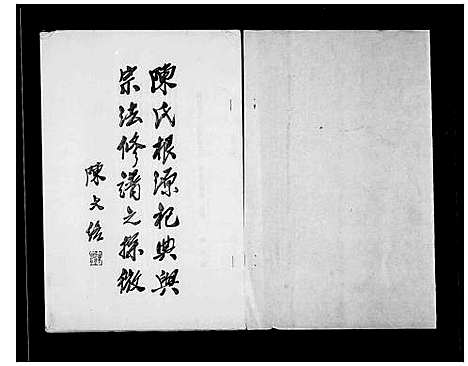 陳氏根源祀典與
宗法修譜之探微
陳文